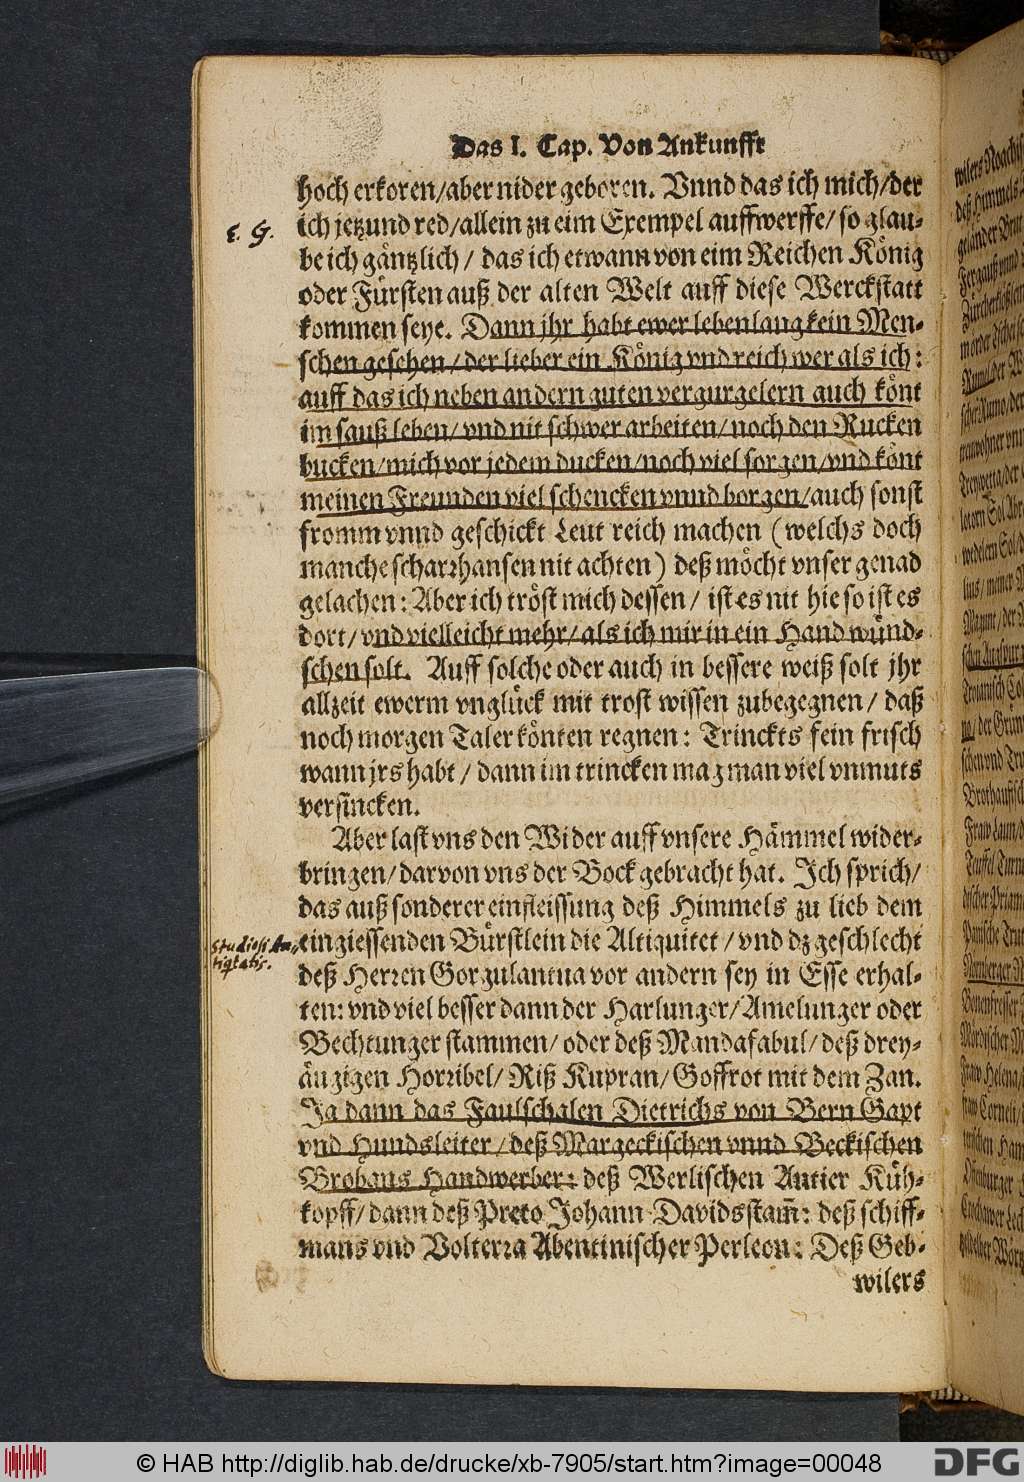 Das I. Cap. Von Ankunfft
hoch erkoren/aber nider geboren. Vnnd das ich mich/der
ich jetzund red/allein zu eim Exempel auffwerffe/so glau-
be ich gäntzlich/ das ich etwann von eim Reichen König
oder Fürsten auß der alten Welt auff diese Werckstatt
kommen seye. Dann jhr habt ewer lebenlang kein Men-
schen gesehen/der lieber ein König vnd reich wer als ich:
auff das ich neben andern guten vergurgelern auch könt
im sauß leben/vnd nit schwer arbeiten/noch den Rucken
bucken/mich vor jedem ducken/noch viel sorgen/vnd könt
meinen Freunden viel schencken vnnd borgen/auch sonst
fromm vnnd geschickt Leut reich machen (welchs doch
manche scharrhansen nit achten) deß möcht vnser genad
gelachen: Aber ich tröst mich dessen/ ist es nit hie so ist es
dort/vnd vielleicht mehr/als ich mir in ein Hand wünd-
schen solt. Auff solche oder auch in bessere weiß solt jhr
allzeit ewerm vnglück mit trost wissen zubegegnen/ daß
noch morgen Taler könten regnen: Trinckts fein frisch
wann jrs habt/ dann im trincken mag man viel vnmuts
versincken.
Aber last vns den Wider auff vnsere Hämmel wider-
bringen/darvon vns der Bock gebracht hat. Ich sprich/
das auß sonderer einfleissung deß Himmels zu lieb dem
eingiessenden Bürstlein die Altiquitet/vnd dz geschlecht
deß Herren Gorgulantua vor andern sey in Esse erhal-
ten: vnd viel besser dann der Harlunger/Amelunger oder
Bechtunger stammen/oder deß Mandafabul/deß drey-
äugigen Horribel/Riß Kupran/Goffrot mit dem Zan.
Ja dann das Faulschalen Dietrichs von Bern Gapt
vnd Hundsleiter/deß Margeckischen vnnd Beckischen
Brobans Handwerber: deß Werlischen Antier Küh-
kopff/dann deß Preto Johann Davidsstam̄: deß schiff-
mans vnd Volterra Abentinischer Perleon: Deß Geb-
wilers
E. G.
studiosi An-
tiqtatis.
© HAB http://diglib.hab.de/drucke/xb-7905/start.htm?image=00048
DFG